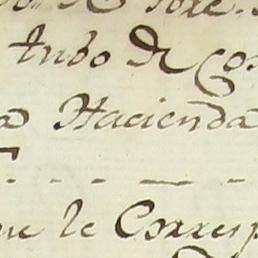 tubo de Co
a Hacienda
ue le Corresp